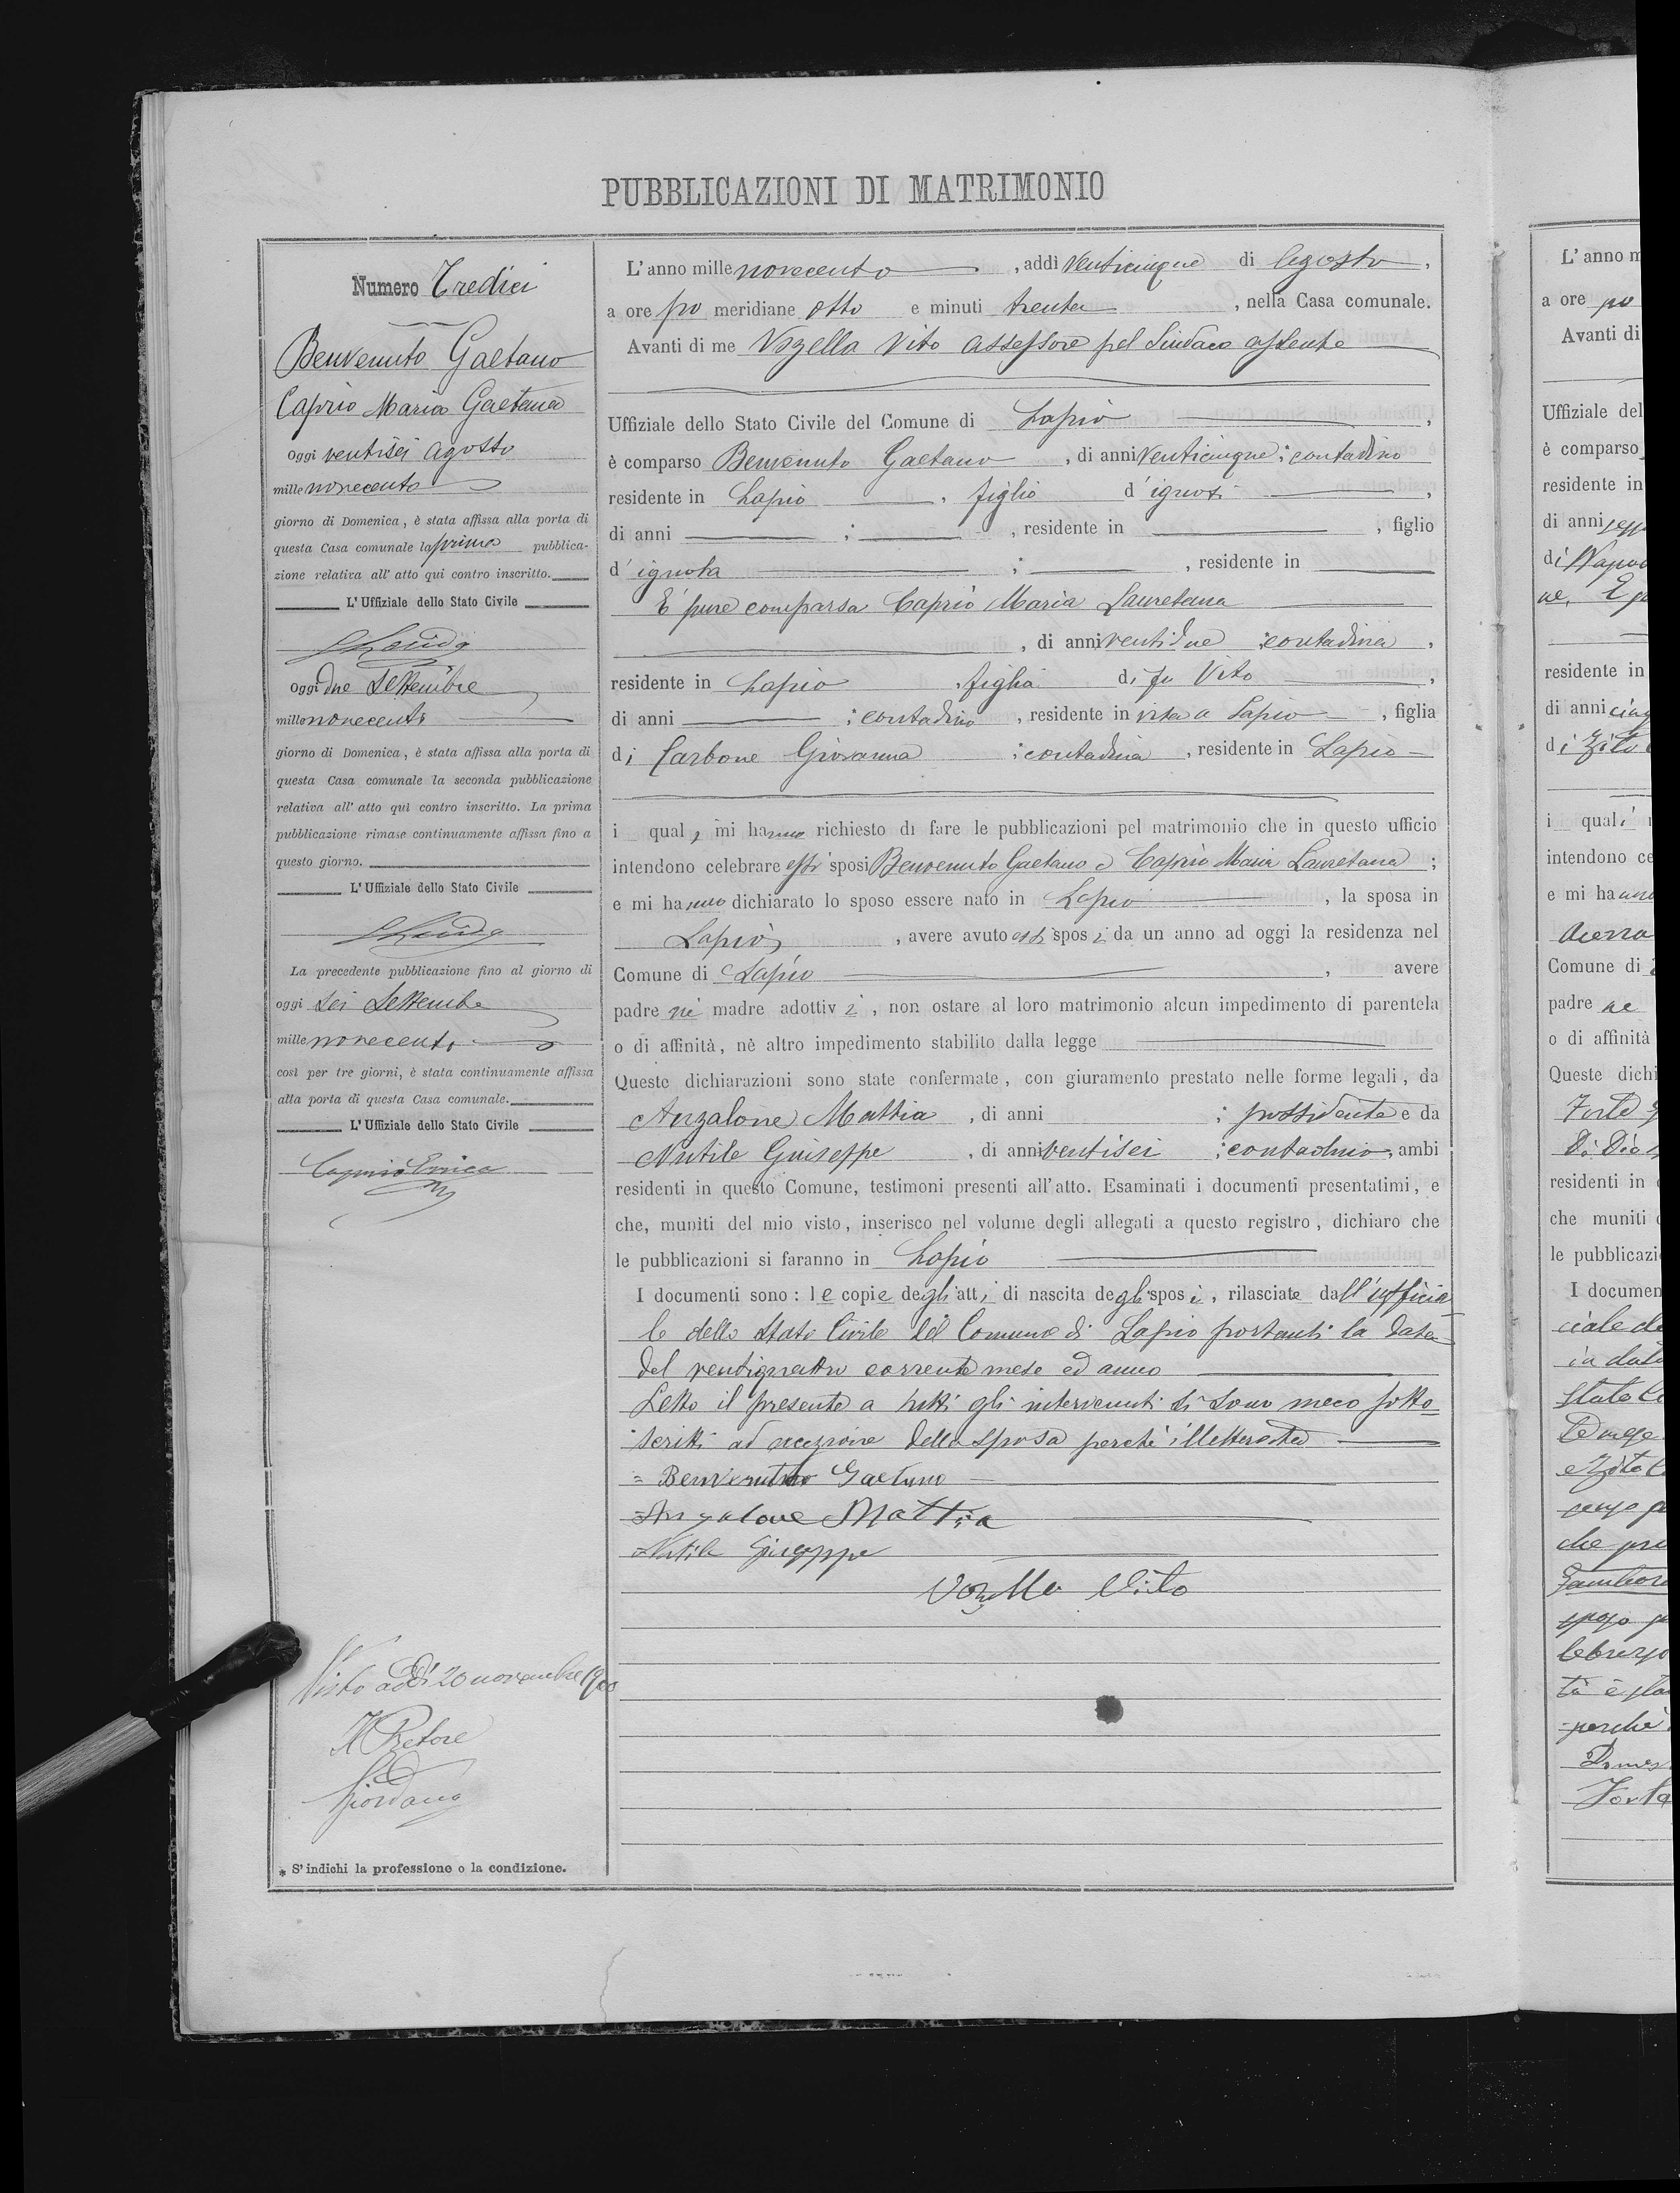 PUBBLICAZIONI DI MATRIMONIO
Numero Tredici
Benvenuto Gaetano
Caprio Maria Gaetana
oggi ventisei agosto
mille novecento
giorno di Domenica, è stata affissa alla porta di
questa Casa comunale la prima pubblica-
zione relativa all' atto qui contro inscritto.
L' Uffiziale dello Stato Civile
oggi due Settembre
mille novecento
giorno di Domenica, è stata affissa alla porta di
questa Casa comunale la seconda pubblicazione
relativa all' atto quì contro inscritto. La prima
pubblicazione rimase continuamente affissa fino a
questo giorno.
L' Uffiziale dello Stato Civile
La precedente pubblicazione fino al giorno di
oggi sei Settembre
mille novecento
così per tre giorni, è stata continuamente affissa
alla porta di questa Casa comunale.
L' Uffiziale dello Stato Civile
Caprio Enrico
Visto addì 20 novembre 1900
Il Pretore
Giordano
* S' indichi la professione o la condizione.
L' anno mille novecento , addì venticinque di Agosto ,
a ore po meridiane otto e minuti trenta , nella Casa comunale.
Avanti di me Vozella Vito assessore pel Sindaco assente
Uffiziale dello Stato Civile del Comune di Lapio ,
è comparso Benvenuto Gaetano , di anni venticinque ; contadino
residente in Lapio , figlio d' ignoti ,
di anni ; , residente in , figlio
d' ignota ; , residente in
E' pure comparsa Caprio Maria Lauretana
, di anni ventidue ; contadina ,
residente in Lapio , figlia di fu Vito ,
di anni ; contadino , residente in vita a Lapio , figlia
di Carbone Giovanna ; contadina , residente in Lapio
i quali mi hanno richiesto di fare le pubblicazioni pel matrimonio che in questo ufficio
intendono celebrare essi sposi Benvenuto Gaetano e Caprio Maria Lauretana ;
e mi hanno dichiarato lo sposo essere nato in Lapio , la sposa in
Lapio , avere avuto essi sposi da un anno ad oggi la residenza nel
Comune di Lapio , avere
padre nè madre adottivi , non ostare al loro matrimonio alcun impedimento di parentela
o di affinità, nè altro impedimento stabilito dalla legge
Queste dichiarazioni sono state confermate, con giuramento prestato nelle forme legali, da
Anzalone Mattia , di anni ; possidente e da
Nutile Giuseppe , di anni ventisei ; contadino , ambi
residenti in questo Comune, testimoni presenti all' atto. Esaminati i documenti presentatimi, e
che, muniti del mio visto, inserisco nel volume degli allegati a questo registro, dichiaro che
le pubblicazioni si faranno in Lapio
I documenti sono: le copie degli atti di nascita degli sposi, rilasciate dall' ufficia
le dello Stato Civile del Comune di Lapio portanti la data
del ventiquattro corrente mese ed anno
Letto il presente a tutti gli intervenuti si sono meco sotto=
scritti ad eccezione della sposa perchè illetterata
= Benvenuto Gaetano
= Anzalone Mattia
= Nutile Giuseppe
Vozella Vito
L' anno m
a ore po
Avanti di
Uffiziale del
è comparso
residente in
di anni
di
residente in
di anni
di Zito
i quali
intendono ce
e mi hanno
Comune di
padre ne
o di affinità
Queste dichi
residenti in
che muniti
le pubblicazi
I documen
ciale de
in data
perchè